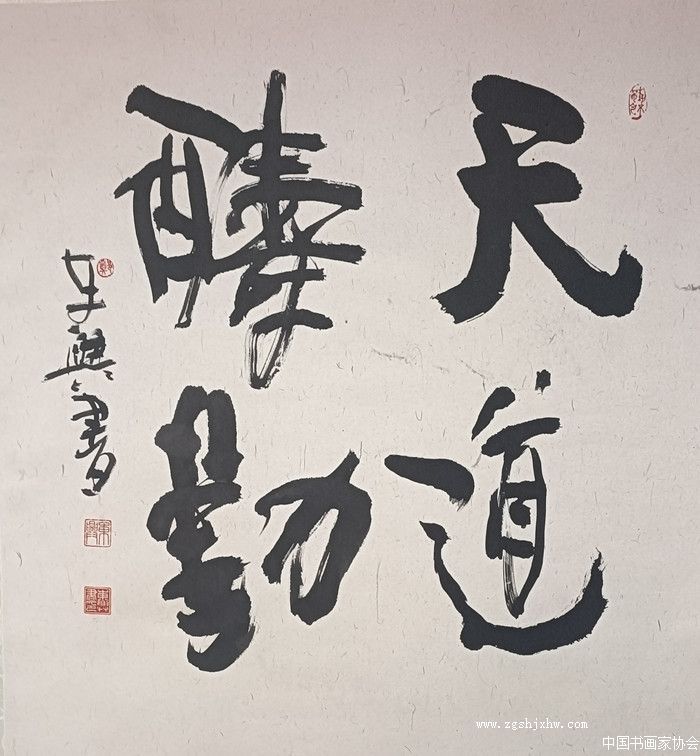 天道
醻勤
东興書
www.zgshjxhw.com
中国书画家协会